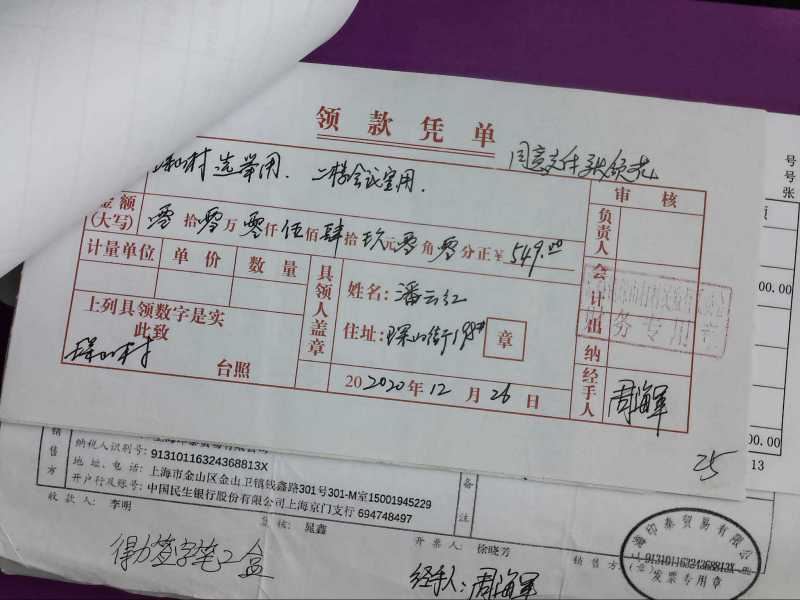 领款凭单
村选举用. 二楼会议室用.
金额
(大写) 零拾零万零仟伍佰肆拾玖元零角零分正¥549.00
计量单位 单价 数量
上列具领数字是实
此致
台照
具领人盖章
姓名: 潘云红
住址: 章
20 2020年12月26日
审核
负责人
会计
出纳
经手人 周海军
务专用章
25
号
号
张
00.00
00.00
13
销售方
纳税人识别号: 91310116324368813X
地址、电话: 上海市金山区金山卫镇钱鑫路301号301-M室15001945229
开户行及账号: 中国民生银行股份有限公司上海京门支行 694748497
备注
收款人: 李明
复核: 晁鑫
开票人: 徐晓芳
销售方:(章)
印泰贸易有限公
91310116324368813X
发票专用章
得力签字笔2盒
经手人: 周海军